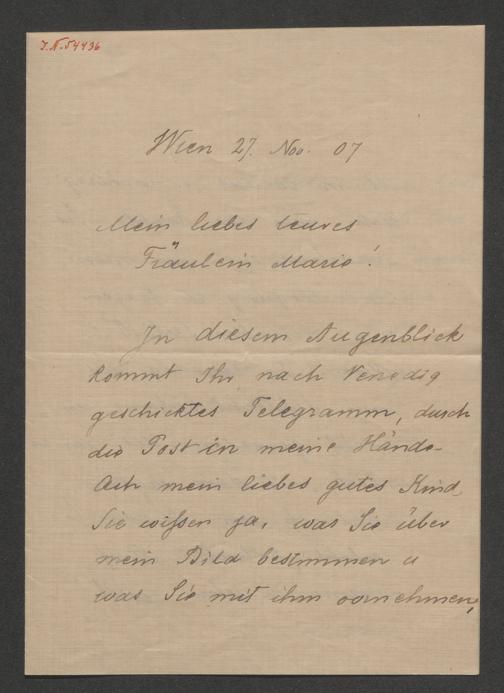 J.N. 54436
Wien 27. Nov. 07
Mein liebes teures
Fräulein Marie!
In diesem Augenblick
kommt Ihr nach Venedig
geschicktes Telegramm, durch
die Post in meine Hände.
Ach mein liebes gutes Kind,
Sie wissen ja, was Sie über
mein Bild bestimmen u
was Sie mit ihm vornehmen,